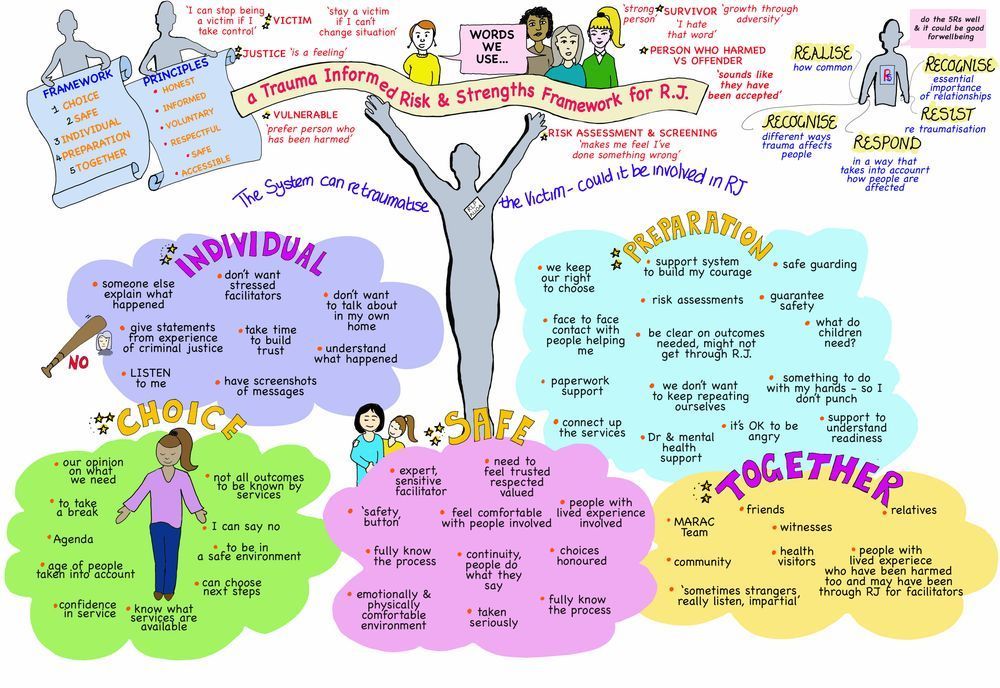 FRAMEWORK
1 CHOICE
2 SAFE
3 INDIVIDUAL
4 PREPARATION
5 TOGETHER
PRINCIPLES
• HONEST
• INFORMED
• VOLUNTARY
• RESPECTFUL
• SAFE
• ACCESSIBLE
'I can stop being
a victim if I
take control'
VICTIM
'stay a victim
if I can't
change situation'
JUSTICE 'is a feeling'
WORDS
WE
USE...
'strong
person'
SURVIVOR 'growth through
adversity'
'I hate
that word'
PERSON WHO HARMED
VS OFFENDER
'sounds like
they have
been accepted'
a Trauma Informed Risk & Strengths Framework for R.J.
VULNERABLE
'prefer person who
has been harmed'
RISK ASSESSMENT & SCREENING
'makes me feel I've
done something wrong'
do the 5Rs well
& it could be good
forwellbeing
REALISE
how common
RECOGNISE
essential
importance
of relationships
RESIST
re traumatisation
RECOGNISE
different ways
trauma affects
people
RESPOND
in a way that
takes into accounrt
how people are
affected
The System can retraumatise the Victim - could it be involved in RJ
INDIVIDUAL
• someone else
explain what
happened
• don't want
stressed
facilitators
• don't want
to talk about
in my own
home
• give statements
from experience
of criminal justice
• take time
to build
trust
• understand
what happened
NO
• LISTEN
to me
• have screenshots
of messages
PREPARATION
• we keep
our right
to choose
• support system
to build my courage
• safe guarding
• risk assessments
• guarantee
safety
• face to face
contact with
people helping
me
• be clear on outcomes
needed, might not
get through R.J.
• what do
children
need?
• paperwork
support
• we don't want
to keep repeating
ourselves
• something to do
with my hands - so I
don't punch
• connect up
the services
• Dr & mental
health
support
• it's OK to be
angry
• support to
understand
readiness
CHOICE
• our opinion
on what
we need
• not all outcomes
to be known by
services
• to take
a break
• I can say no
• Agenda
• to be in
a safe environment
• age of people
taken into account
• can choose
next steps
• confidence
in service
• know what
services are
available
SAFE
• expert,
sensitive
facilitator
• need to
feel trusted
respected
valued
• 'safety
button'
• feel comfortable
with people involved
• people with
lived experience
involved
• fully know
the process
• continuity,
people do
what they
say
• choices
honoured
• emotionally &
physically
comfortable
environment
• taken
seriously
• fully know
the process
TOGETHER
• friends
• relatives
• MARAC
Team
• witnesses
• community
• health
visitors
• people with
lived experiece
who have been harmed
too and may have been
through RJ for facilitators
• 'sometimes strangers
really listen, impartial'